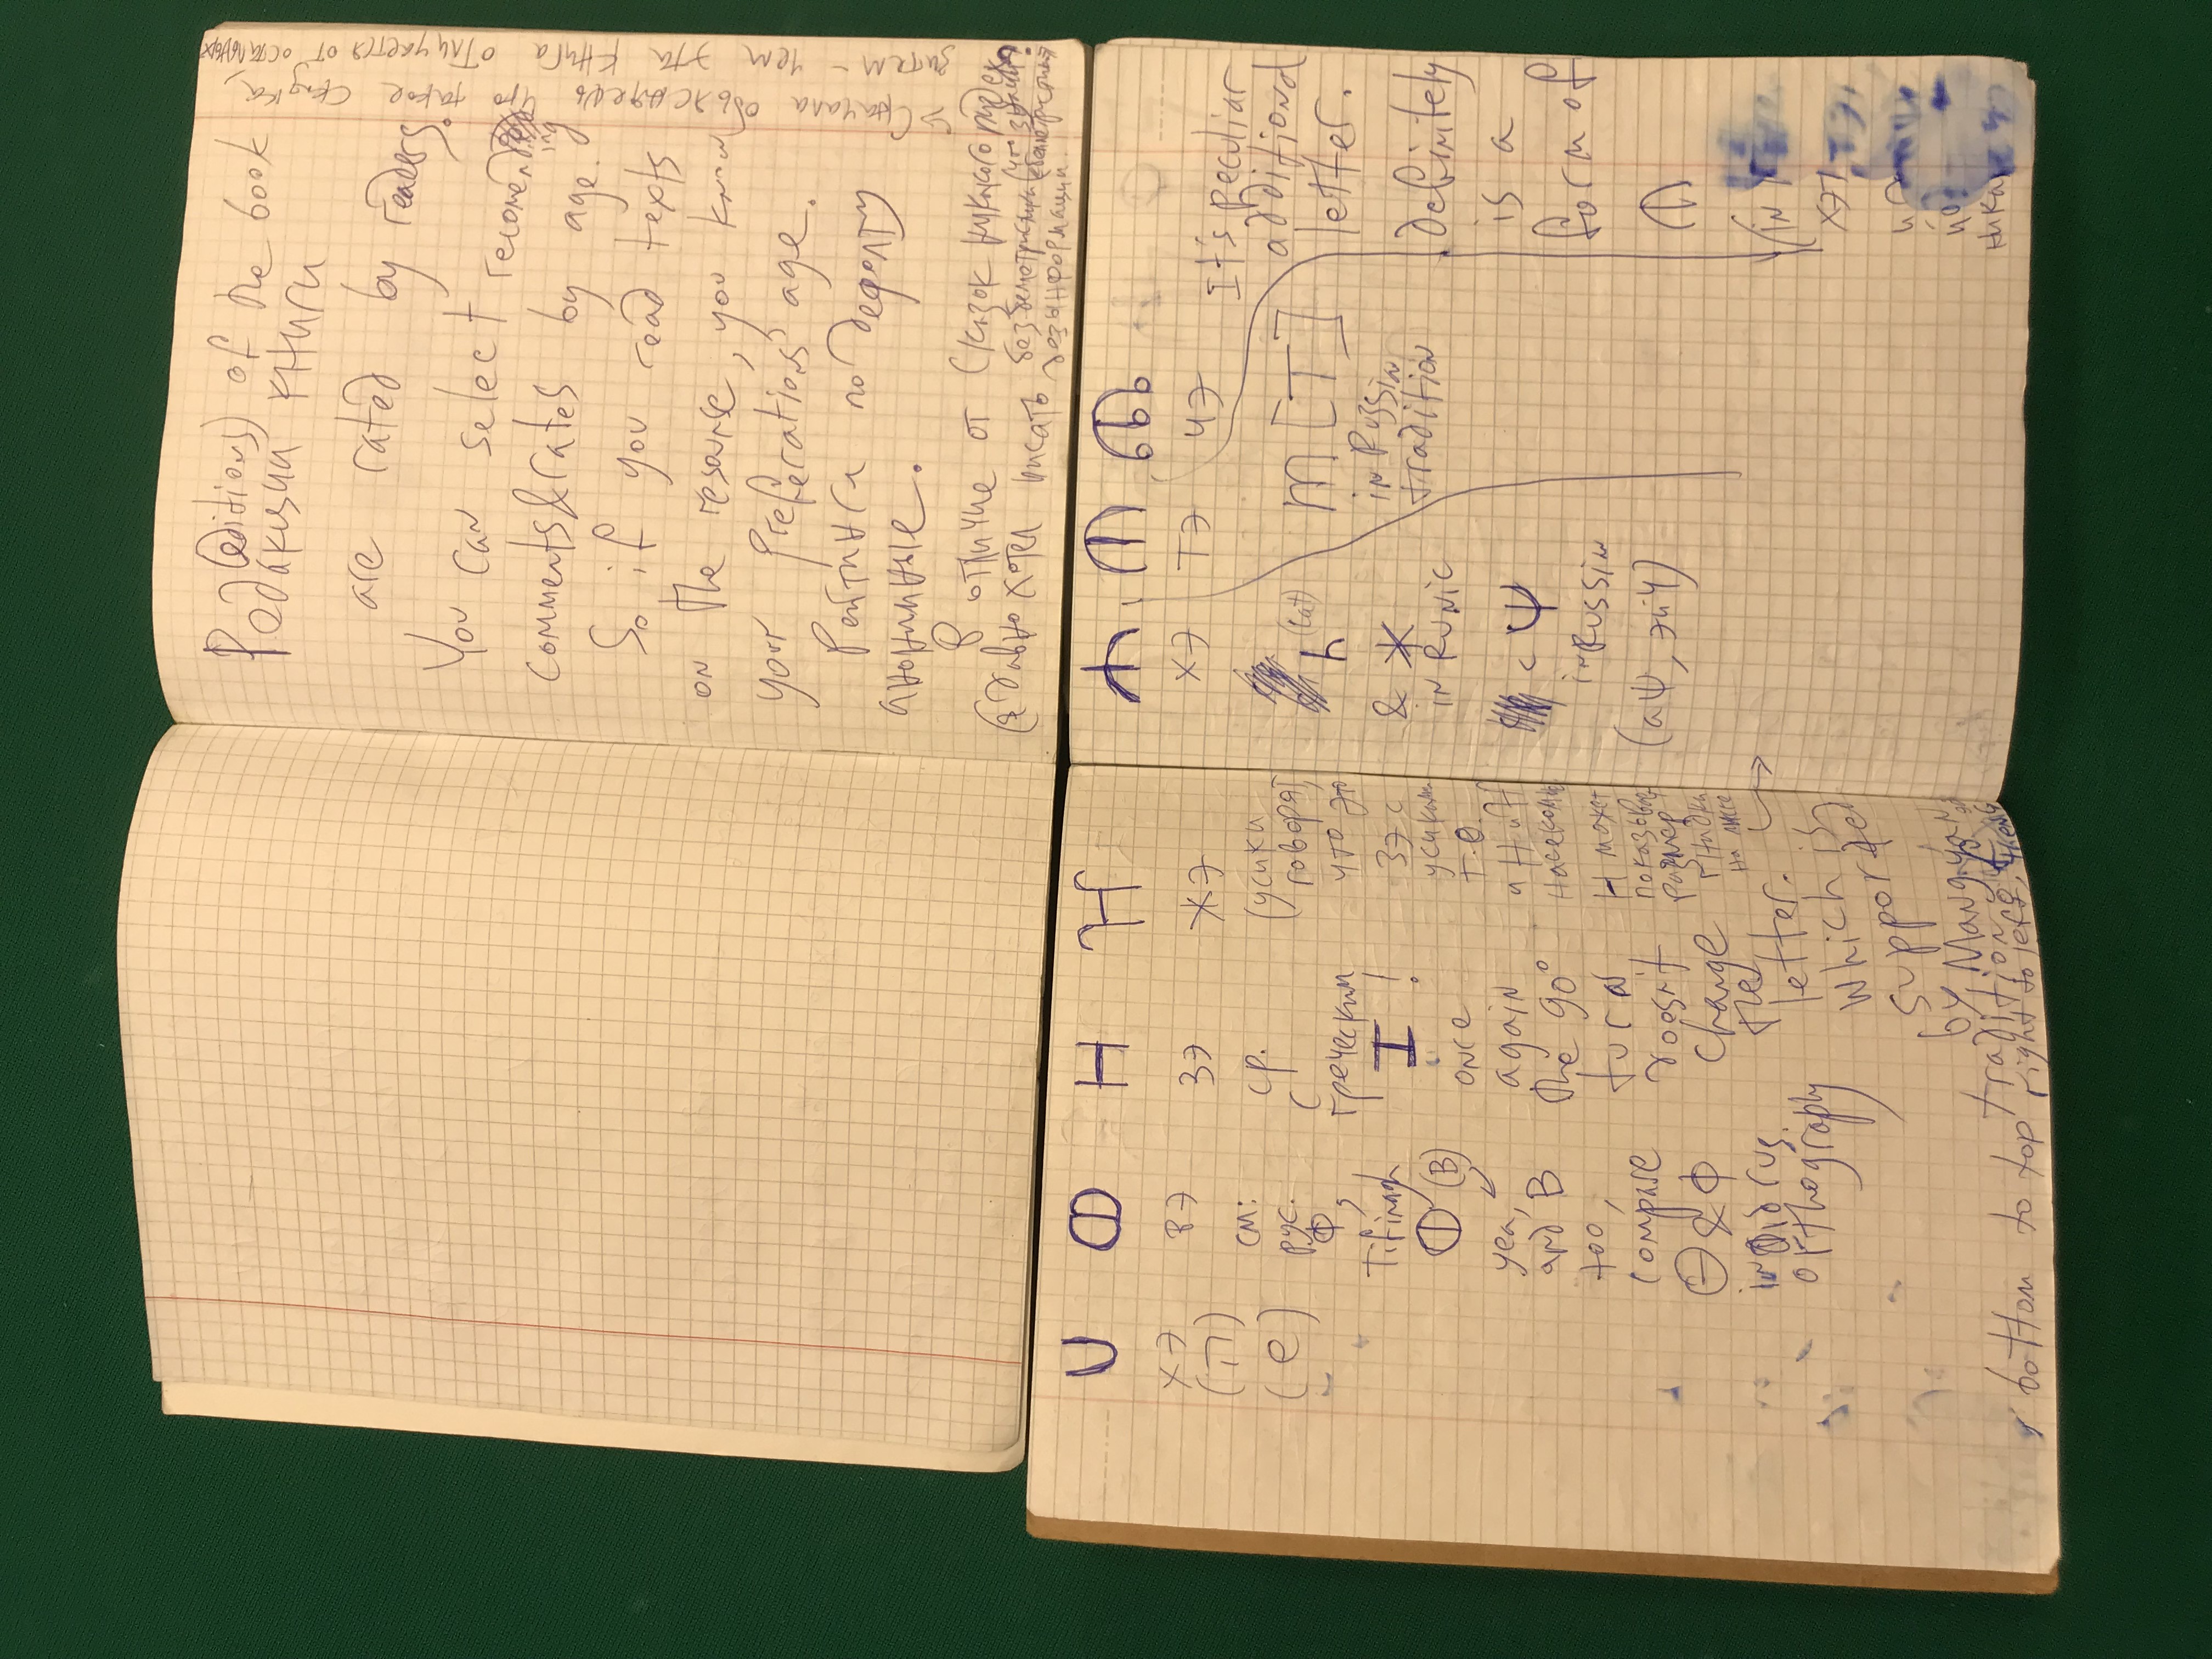 (editions) of the book
Редакции книги
are rated by readers.
You can select
comments&rates by age.
So if you read texts
on the resourse, you know
your preferations' age.
Рейтинги по дефолту
анонимные.
В отличие от сказок никакого
давно хотел писать без
дезынформации.
Сначала объясняешь что такое скидка,
затем – чем эта книга отличается от остальных
U Ф H
хэ вэ зэ жэ
(ה)
(e)
см:
рус.
Ф,
Tifinagh
Ф (B)
yea,
and B
too,
compare
Ѳ & Ф
in Old rus.
orthography
ср.
с
греческим
I !
once
again
the 90°
turn
doesn't
change
the
letter.
Which is
supported
by Mangyan
tradition of
bottom to top right to left, then
(усики
говорят,
что это
зэ с
усиками
т.о.
насекомые
H может
показывать
размер
на листе
хэ тэ чэ
h (Lat)
& ж
in Runic
< Ψ
in Russin
(аΨ, эйч)
m [T]
in Russin
tradition
It's peculiar
additional
letter.
definitely
is a
form of
(in
хэт